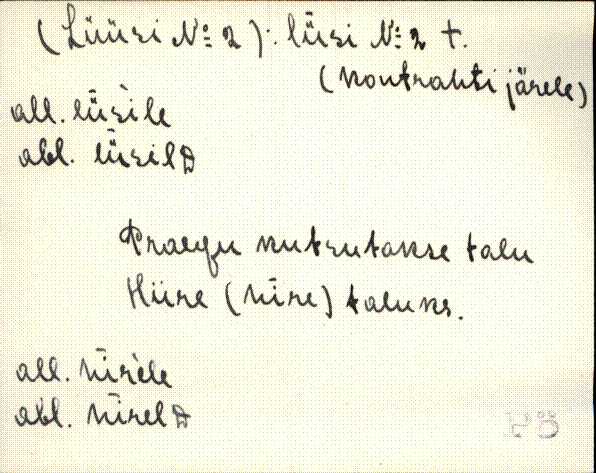 (Lüüsi № 2): lüsi № 2 t.
(kontrahti järele)
all. lüsile
abl. lüsilD
Praegu kutsutakse talu
Hiire (hire) taluks.
all. hirele
abl. hirelD